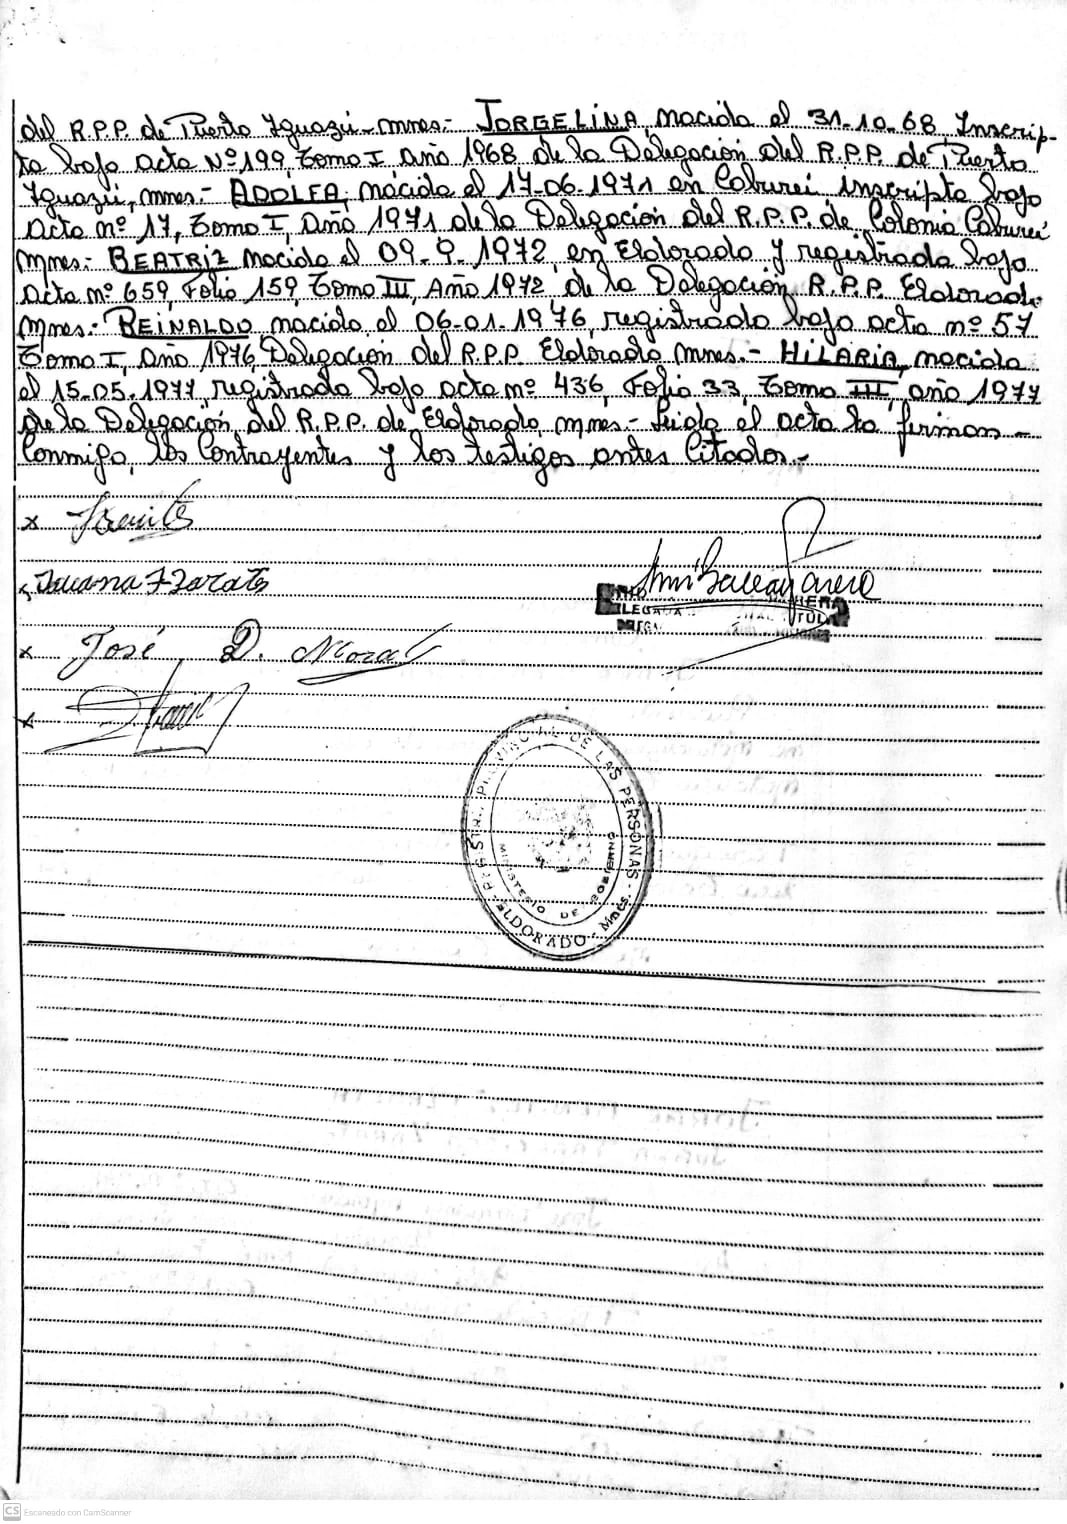 del R.P.P. de Puerto Iguazú - mnes:- JORGELINA nacida el 31-10-68 Inscrip-
ta bajo acta Nº 199, Tomo I año 1968 de la Delegación del R.P.P. de Puerto
Iguazú, mnes:- ADOLFA, nacida el 17-06-1971 en Caburei inscripta bajo
Acta nº 17, Tomo I, Año 1971 de la Delegación del R.P.P. de Colonia Caburei
Mnes:- BEATRIZ nacida el 09-9-1972 en Eldorado y registrada bajo
Acta nº 659, Folio 159, Tomo III, Año 1972 de la Delegación R.P.P. Eldorado
Mnes:- REINALDO nacido el 06-01-1976, registrado bajo acta nº 57
Tomo I, Año 1976, Delegación del R.P.P. Eldorado Mnes.- HILARIA, nacida
el 15-05-1977, registrada bajo acta nº 436, Folio 33, Tomo III, año 1977
de la Delegación del R.P.P. de Eldorado, mnes- Leida el acta la firman -
Conmigo, los Contrayentes y los testigos antes Citados.-
x
x Juana F Zarate
x José D. Moral
x
REGISTRO PROVINCIAL DE LAS PERSONAS
MINISTERIO DE GOBIERNO
ELDORADO - Mnes.
CS Escaneado con CamScanner